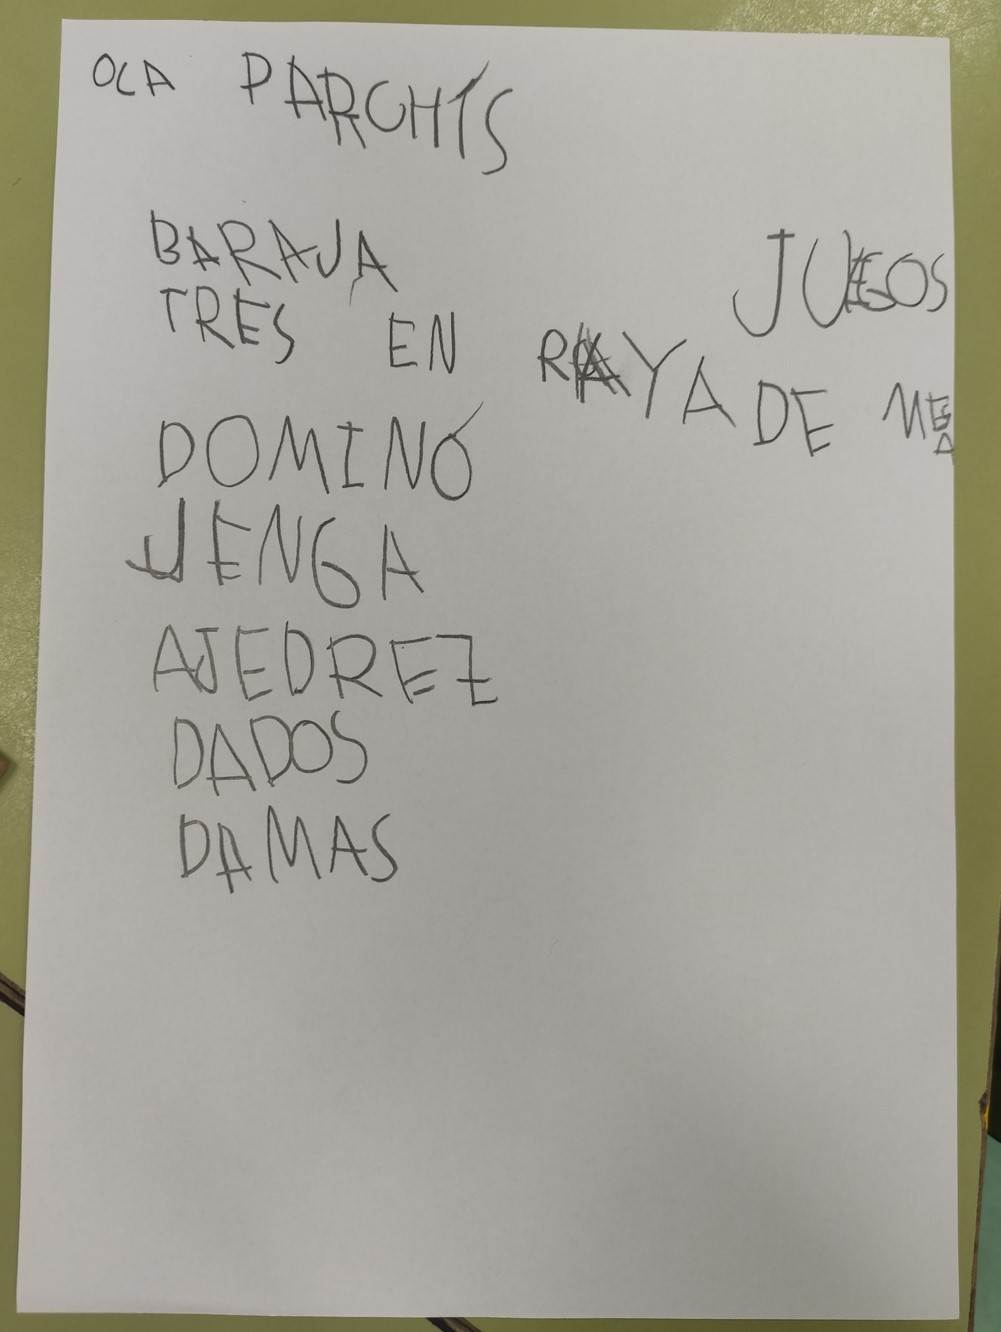 OCA PARCHÍS
BARAJA
TRES EN RAYA
DOMINÓ
JENGA
AJEDREZ
DADOS
DAMAS
JUEGOS
DE MESA